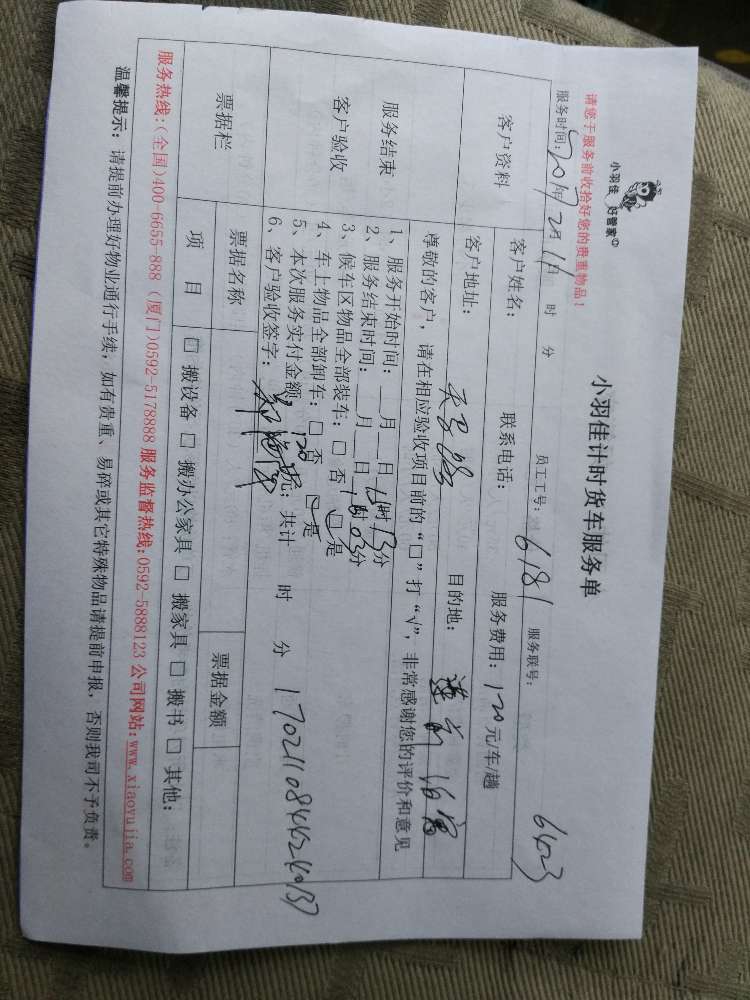 小羽佳 好管家
小羽佳计时货车服务单
请您于服务前收拾好您的贵重物品！
服务时间：2017年2月11日 时 分 员工工号：6181 服务联号： 6423
客户资料
客户姓名： 联系电话： 服务费用：120元/车/趟
客户地址： 目的地：莲前
服务结束
客户验收
尊敬的客户，请在相应验收项目前的“□”打“√”，非常感谢您的评价和意见
1、服务开始时间：__月__日13时13分
2、服务结束时间：__月__日 时03分
3、候车区物品全部装车：□ 否 □是
4、车上物品全部卸车：□ 否 □是
5、本次服务实付金额：120元；共计 时 分
6、客户验收签字：
17021108444240137
票据栏
票据名称 票据金额
项 目 □ 搬设备 □ 搬办公家具 □ 搬家具 □ 搬书 □ 其他：
服务热线：(全国)400-6655-888 (厦门)0592-5178888 服务监督热线：0592-5888123 公司网站：www.xiaoyujia.com
温馨提示：请提前办理好物业通行手续，如有贵重、易碎或其它特殊物品请提前申报，否则我司不予负责。